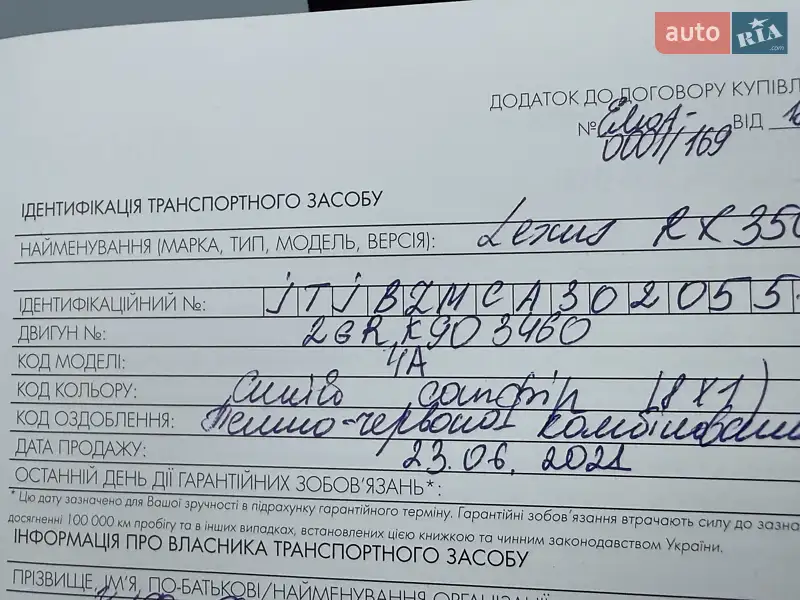 auto RIA .com
ДОДАТОК ДО ДОГОВОРУ КУПІВЛ
№ ВІД
0001/169
ІДЕНТИФІКАЦІЯ ТРАНСПОРТНОГО ЗАСОБУ
НАЙМЕНУВАННЯ (МАРКА, ТИП, МОДЕЛЬ, ВЕРСІЯ): Lexus RX 350
ІДЕНТИФІКАЦІЙНИЙ №: JTJBZMCA302055
ДВИГУН №: 2GR K903460
КОД МОДЕЛІ: 4A
КОД КОЛЬОРУ: сапфір (8X1)
КОД ОЗДОБЛЕННЯ: Темно-червоної комбінован
ДАТА ПРОДАЖУ: 23.06.2021
ОСТАННІЙ ДЕНЬ ДІЇ ГАРАНТІЙНИХ ЗОБОВ'ЯЗАНЬ*:
* Цю дату зазначено для Вашої зручності в підрахунку гарантійного терміну. Гарантійні зобов'язання втрачають силу до зазна
досягненні 100 000 км пробігу та в інших випадках, встановлених цією книжкою та чинним законодавством України.
ІНФОРМАЦІЯ ПРО ВЛАСНИКА ТРАНСПОРТНОГО ЗАСОБУ
ПРІЗВИЩЕ, ІМ'Я, ПО-БАТЬКОВІ/НАЙМЕНУВАННЯ ОРГАНІЗАЦІЇ